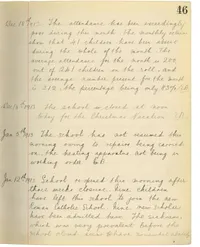 46
Dec 18th 1913. The attendance has been exceedingly
poor during the month. The monthly return
shows that 41 children have been absent
during the whole of the month. The
average attendance for the month is 222
out of 261 children on the roll, and
the average number present for the month
is 222, the percentage being only
Dec 19th 1913. The school is closed at noon
today for the Christmas Vacation
Jan 5th 1913 The school has not resumed this
morning owing to repairs being carried
on, the heating apparatus not being in
working order
Jan 12th 1913 School reopened this morning after
three weeks closure. Nine children
have left this school to join the new
Roman Catholic School. Nine new scholars
have been admitted here. The sickness,
which was very prevalent before the
school closed